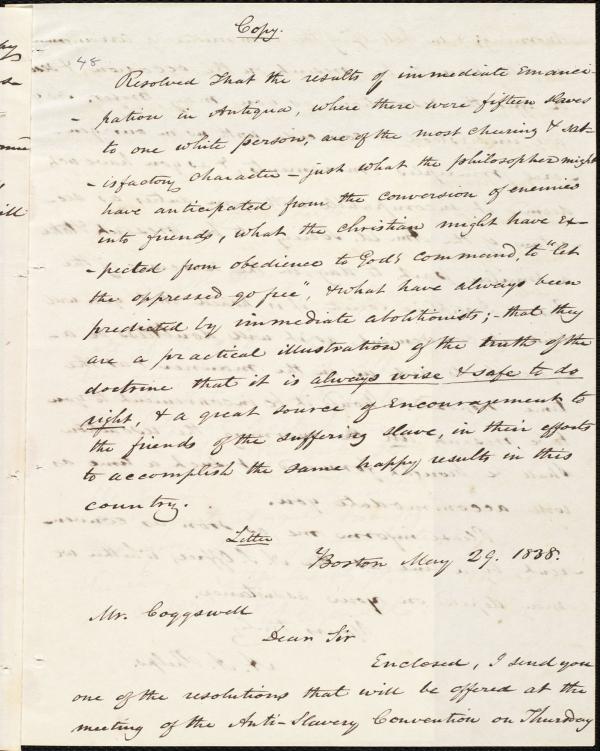 Copy.
48
Resolved That the results of immediate Emanci-
- pation in Antigua, where there were fifteen slaves
to one white person, are of the most cheering & sat-
- isfactory character - just what the philosopher might
have anticipated from the conversion of enemies
into friends, what the christian might have ex-
- pected from obedience to God's command, to "let
the oppressed go free", & what have always been
prediated by immediate abolitionists; - that they
are a practical illustration of the truth of the
doctrine that it is always wise & safe to do
right, & a great source of Encouragement to
the friends of the suffering slave, in their efforts
to accomplish the same happy results in this
country.
Letter
Boston May 29. 1838.
Mr. Coggswell
Dear Sir
Enclosed, I send you
one of the resolutions that will be offered at the
meeting of the Anti-Slavery Convention on Thursday